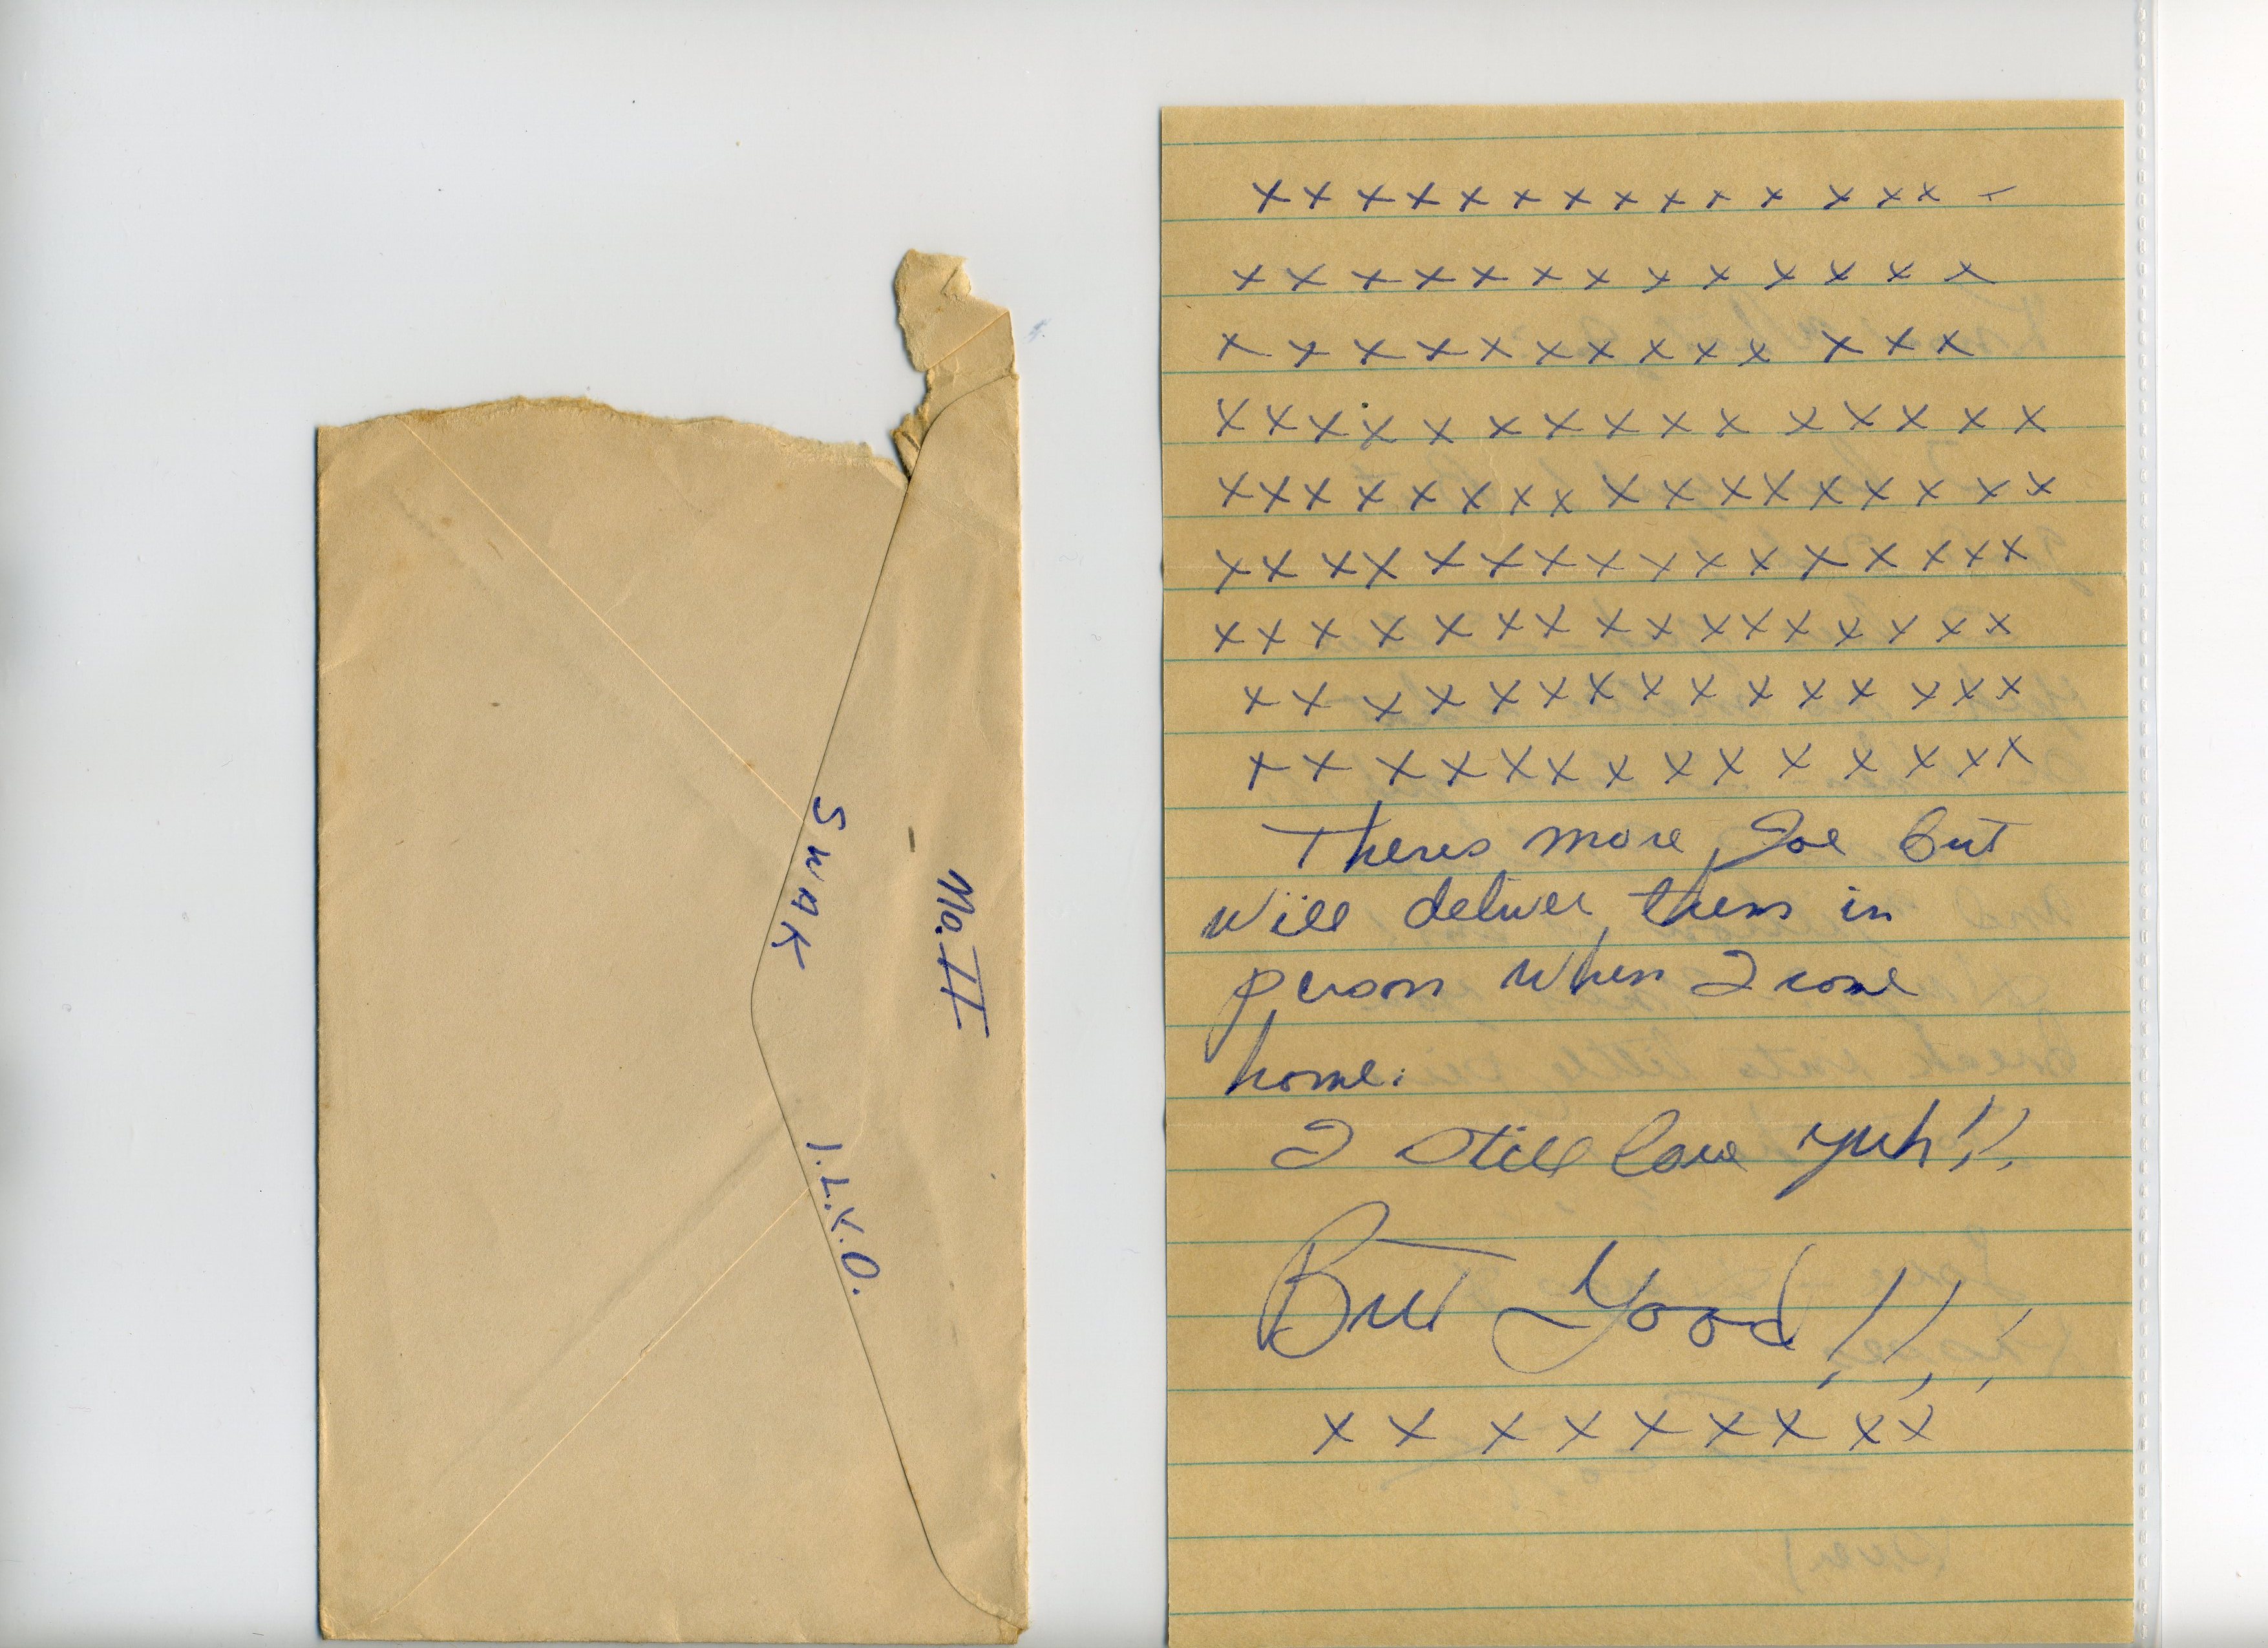 No. II
SWAK I.L.Y.O.
x x x x x x x x x x x x x x -
x x x x x x x x x x x x x
x x x x x x x x x x x x x
x x x x x x x x x x x x x x x
x x x x x x x x x x x x x x x x x
x x x x x x x x x x x x x x x x
x x x x x x x x x x x x x x x x
x x x x x x x x x x x x x x x
x x x x x x x x x x x x x x
Theres more, Joe but
will deliver them in
person when I come
home.
I still love yuh!!
But Good!!!
x x x x x x x x x